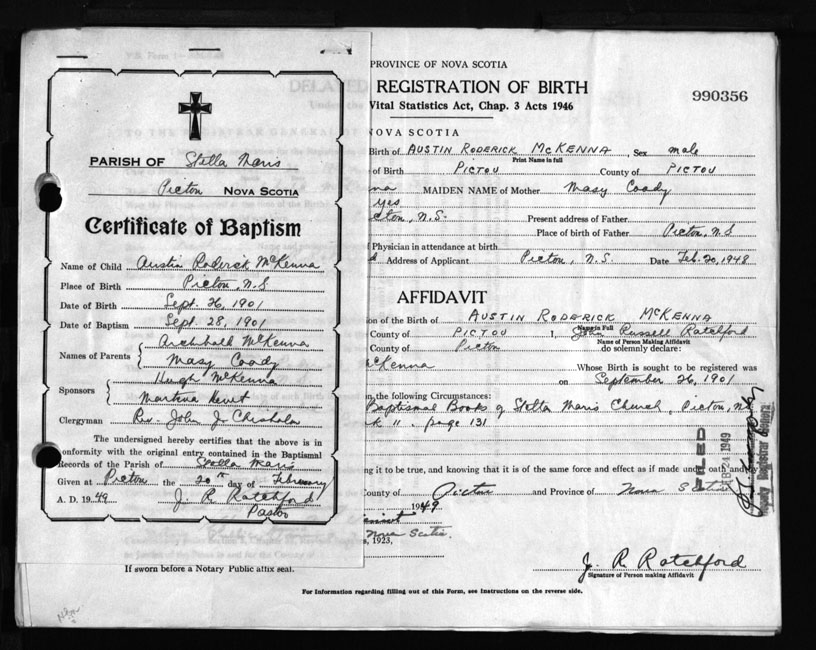 PARISH OF Stella Maris
Pictou NOVA SCOTIA
Certificate of Baptism
Name of Child Austin Roderick McKenna
Place of Birth Pictou, N.S
Date of Birth Sept. 26, 1901
Date of Baptism Sept. 28, 1901
Names of Parents Archibald McKenna
Mary Coady
Sponsors Hugh McKenna
Martina
Clergyman Rev John J. Chisholm
The undersigned hereby certifies that the above is in
conformity with the original entry contained in the Baptismal
Records of the Parish of Stella Maris
Given at Pictou the 20th day of February
A. D. 1949 J. R Ratchford
Pastor
PROVINCE OF NOVA SCOTIA
REGISTRATION OF BIRTH
990356
Vital Statistics Act, Chap. 3 Acts 1946
NOVA SCOTIA
Birth of AUSTIN RODERICK McKENNA, Sex male
Print Name in full
of Birth PICTOU County of PICTOU
na MAIDEN NAME of Mother Mary Coady
yes
N.S. Present address of Father
Place of birth of Father Pictou, N.S
Physician in attendance at birth
Address of Applicant Pictou, N.S. Date Feb. 20, 1948
AFFIDAVIT
on of the Birth of AUSTIN RODERICK McKENNA
Name in Full
County of PICTOU I, John Russell Ratchford
Name of Person Making Affidavit
County of Pictou do solemnly declare:
McKenna Whose Birth is sought to be registered was
on September 26, 1901
in the following Circumstances:
Baptismal Books of Stella Maris Church, Pictou, N.S
k 11. page 131
ng it to be true, and knowing that it is of the same force and effect as if made under oath, and by
County of Pictou and Province of Nova Scotia
1949
Nova Scotia
, 1923,
FILED
FEB 24 1949
Deputy Registrar General
J. R Ratchford
Signature of Person making Affidavit
If sworn before a Notary Public affix seal.
For Information regarding filling out of this Form, see Instructions on the reverse side.